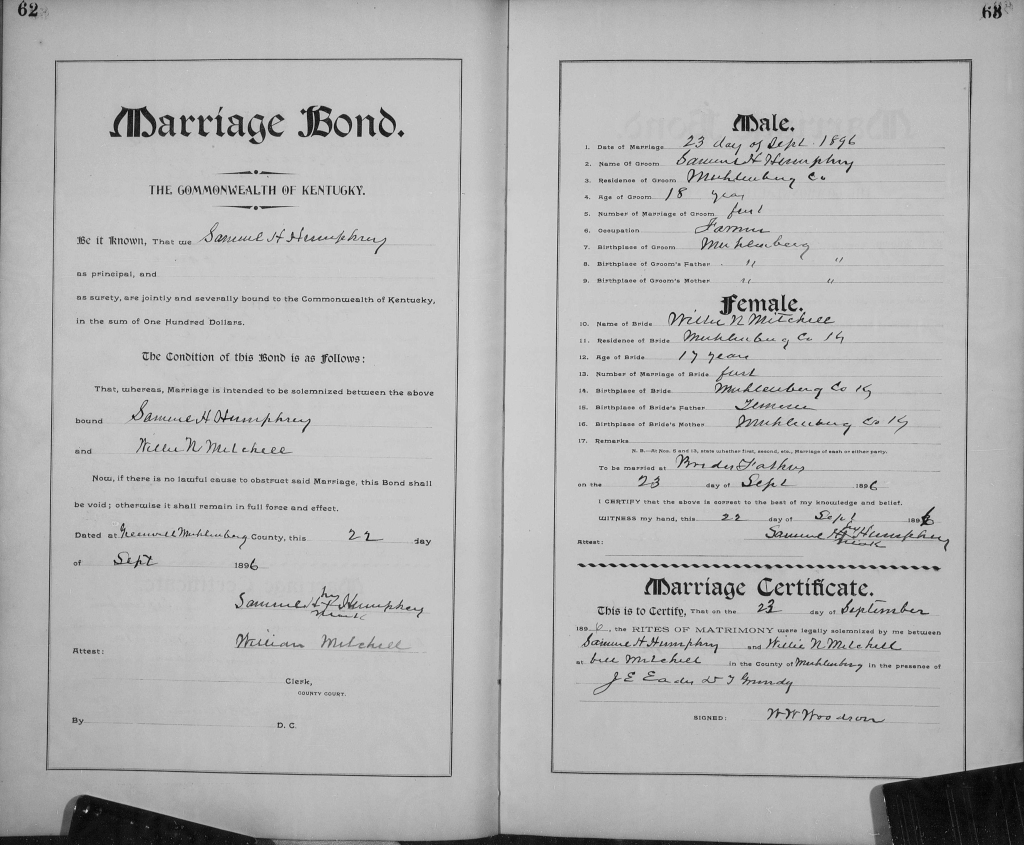 62
Marriage Bond.
THE COMMONWEALTH OF KENTUCKY.
Be it Known, That we Samuel H Humphrey
as principal, and
as surety, are jointly and severally bound to the Commonwealth of Kentucky,
in the sum of One Hundred Dollars.
The Condition of this Bond is as Follows:
That, whereas, Marriage is intended to be solemnized between the above
bound Samuel H Humphrey
and Willie N Mitchell
Now, if there is no lawful cause to obstruct said Marriage, this Bond shall
be void; otherwise it shall remain in full force and effect.
Dated at Muhlenberg County, this 22 day
of Sept 1896
his
Samuel H X Humphrey
mark
Attest: William Mitchell
Clerk,
COUNTY COURT.
By D. C.
63
Male.
1. Date of Marriage 23 day of Sept. 1896
2. Name Of Groom Samuel H Humphry
3. Residence of Groom Muhlenberg Co
4. Age of Groom 18 years
5. Number of Marriage of Groom first
6. Occupation Farmer
7. Birthplace of Groom Muhlenberg
8. Birthplace of Groom's Father " "
9. Birthplace of Groom's Mother " "
Female.
10. Name of Bride Willie N Mitchell
11. Residence of Bride Muhlenberg Co Ky
12. Age of Bride 17 years
13. Number of Marriage of Bride first
14. Birthplace of Bride Muhlenberg Co Ky
15. Birthplace of Bride's Father
16. Birthplace of Bride's Mother Muhlenberg Co Ky
17. Remarks
N. B.—At Nos. 5 and 13, state whether first, second, etc., Marriage of each or either party.
To be married at Brides Fathers
on the 23 day of Sept 1896
I CERTIFY that the above is correct to the best of my knowledge and belief.
WITNESS my hand, this 22 day of Sept 1896
his
Samuel H X Humphrey
mark
Attest:
Marriage Certificate.
This is to Certify, That on the 23 day of September
1896, the RITES OF MATRIMONY were legally solemnized by me between
Samuel H Humphry and Willie N Mitchell
at Bill Mitchell in the County of Muhlenberg in the presence of
J E Eades D T Grundy
SIGNED: W W Woodson